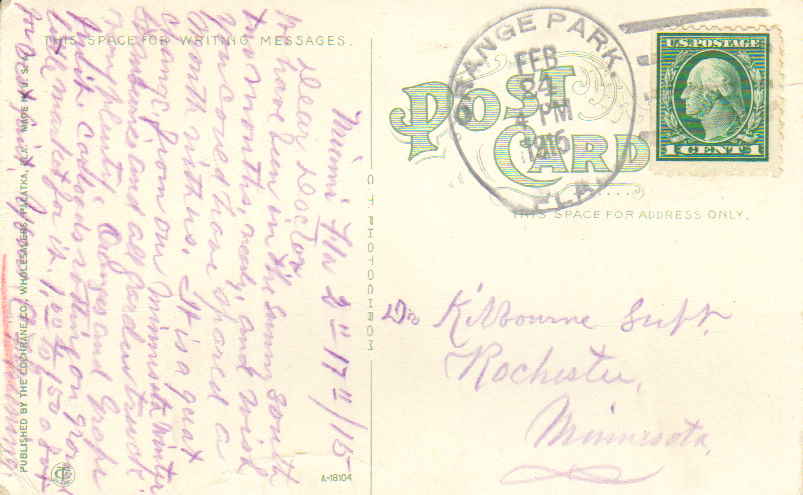 THIS SPACE FOR WRITING MESSAGES.
Miami Fla 2-17-/15
Dear Doctor
have been in the sunny south
two months, nearly, and wish
you could have spared a
month with us. It is a great
change from our Minnesota winter
Sunshine and all garden truck
plenty. Oranges and Grape
fruit
no market for it.
PUBLISHED BY THE COCHRANE CO., WHOLESALERS, PALATKA, FLA. MADE IN U. S. A.
A-18104
POST CARD
THIS SPACE FOR ADDRESS ONLY.
ORANGE PARK.
FEB
24
4 PM
1915
FLA.
U.S. POSTAGE
1 CENT 1
Dr Kilbourne Supt.
Rochester,
Minnesota,